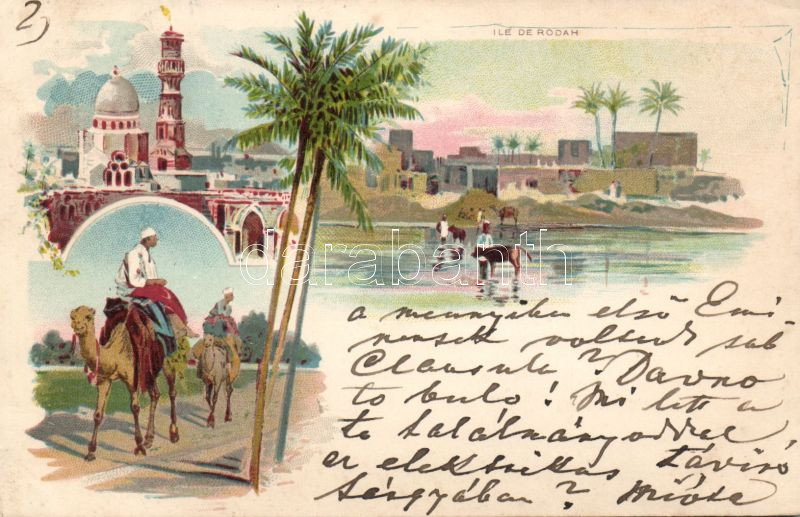 2)
ILE DE RODAH
darabanth
a mennyiben első Emi
nensek voltunk sub
Clausula? Davno
to bulo! Mi lett a
te találmányoddal
az elektrikus távíró
tárgyában? Mióta